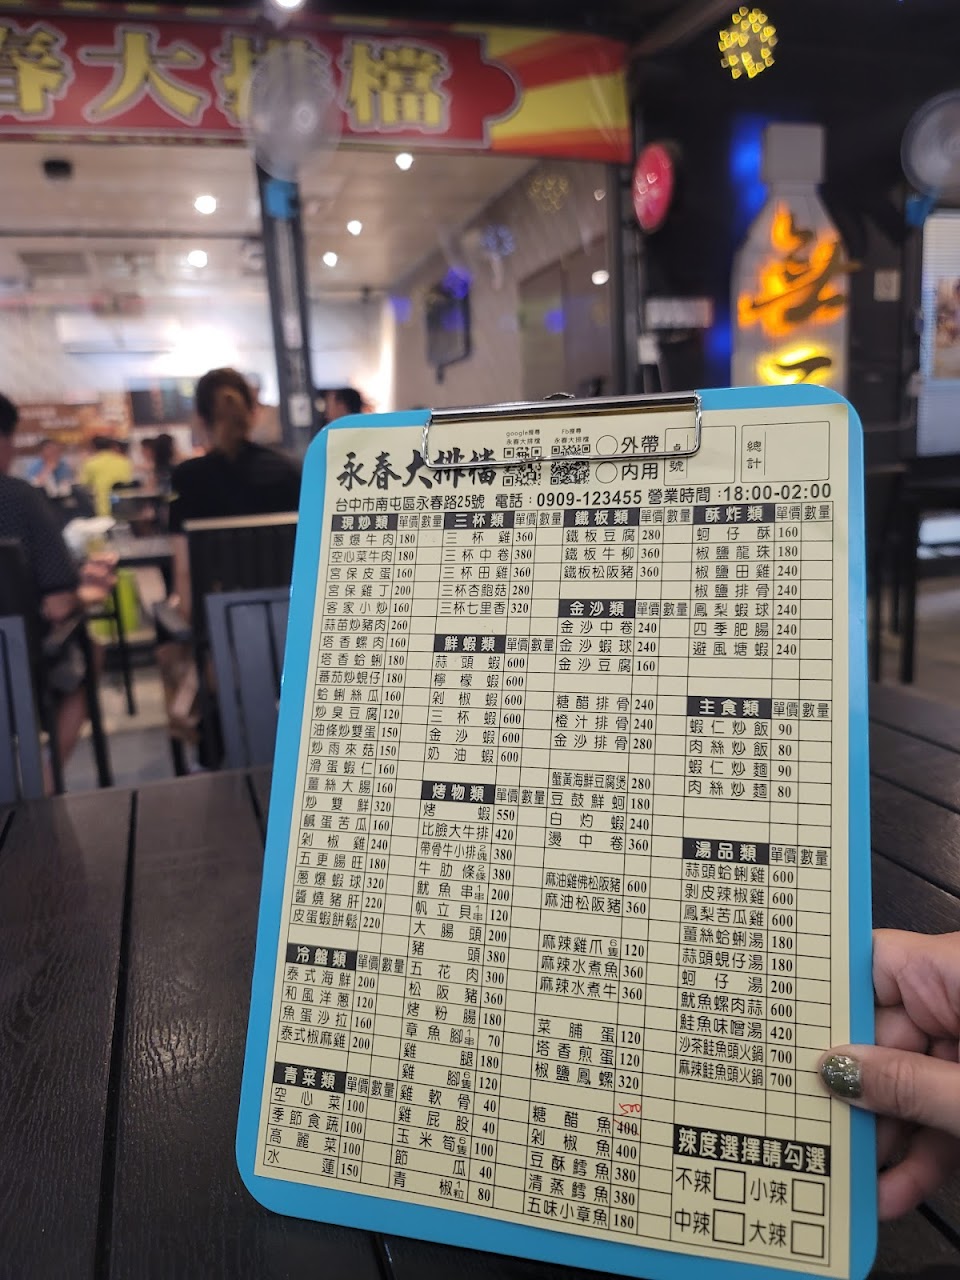 春大排檔
google搜尋
永春大排檔
Fb搜尋
永春大排檔
外帶
內用
桌號
總計
永春大排檔
台中市南屯區永春路25號 電話:0909-123455 營業時間:18:00-02:00
現炒類 單價 數量
蔥爆牛肉 180
空心菜牛肉 180
宮保皮蛋 160
宮保雞丁 200
客家小炒 160
蒜苗炒豬肉 260
塔香螺肉 160
塔香蛤蜊 180
蕃茄炒蜆仔 180
蛤蜊絲瓜 160
炒臭豆腐 120
油條炒雙蛋 150
炒雨來菇 150
滑蛋蝦仁 160
薑絲大腸 160
炒雙鮮 320
鹹蛋苦瓜 160
剁椒雞 240
五更腸旺 180
蔥爆蝦球 320
醬燒豬肝 220
皮蛋蝦餅鬆 220
冷盤類 單價 數量
泰式海鮮 200
和風洋蔥 120
魚蛋沙拉 160
泰式椒麻雞 200
青菜類 單價 數量
空心菜 100
季節食蔬 100
高麗菜 100
水蓮 150
三杯類 單價 數量
三杯雞 360
三杯中卷 380
三杯田雞 360
三杯杏鮑菇 280
三杯七里香 320
鮮蝦類 單價 數量
蒜頭蝦 600
檸檬蝦 600
剁椒蝦 600
三杯蝦 600
金沙蝦 600
奶油蝦 600
烤物類 單價 數量
烤蝦 550
比臉大牛排 420
帶骨牛小排2塊 380
牛肋條2條 380
魷魚串1串 200
帆立貝1串 120
大腸頭 200
豬頭 380
五花肉 300
松阪豬 360
烤粉腸 180
章魚腳1串 70
雞腿 180
雞腳6隻 120
雞軟骨 40
雞屁股 40
玉米筍6隻 100
節瓜 40
青椒1粒 80
鐵板類 單價 數量
鐵板豆腐 280
鐵板牛柳 360
鐵板松阪豬 360
金沙類 單價 數量
金沙中卷 240
金沙蝦球 240
金沙豆腐 160
糖醋排骨 240
橙汁排骨 240
金沙排骨 280
蟹黃海鮮豆腐煲 280
豆鼓鮮蚵 180
白灼蝦 240
燙中卷 360
麻油雞佛松阪豬 600
麻油松阪豬 360
麻辣雞爪6隻 120
麻辣水煮魚 360
麻辣水煮牛 360
菜脯蛋 120
塔香煎蛋 120
椒鹽鳳螺 320
糖醋魚 400 500
剁椒魚 400
豆酥鱈魚 380
清蒸鱈魚 380
五味小章魚 180
酥炸類 單價 數量
蚵仔酥 160
椒鹽龍珠 180
椒鹽田雞 240
椒鹽排骨 240
鳳梨蝦球 240
四季肥腸 240
避風塘蝦 240
主食類 單價 數量
蝦仁炒飯 90
肉絲炒飯 80
蝦仁炒麵 90
肉絲炒麵 80
湯品類 單價 數量
蒜頭蛤蜊雞 600
剝皮辣椒雞 600
鳳梨苦瓜雞 600
薑絲蛤蜊湯 180
蒜頭蜆仔湯 180
蚵仔湯 200
魷魚螺肉蒜 600
鮭魚味噌湯 420
沙茶鮭魚頭火鍋 700
麻辣鮭魚頭火鍋 700
辣度選擇請勾選
不辣 小辣
中辣 大辣